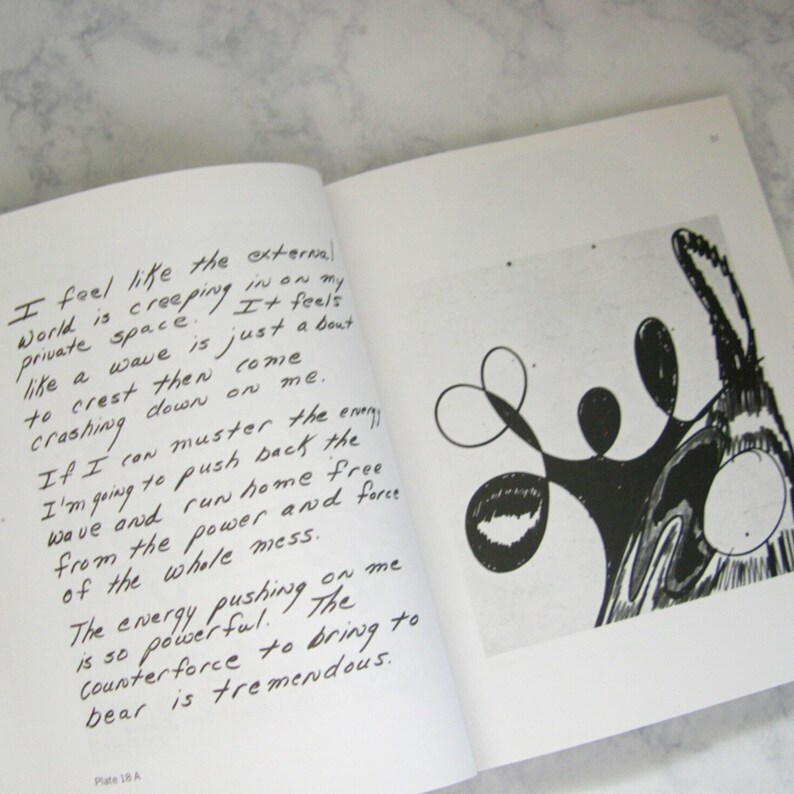 I feel like the external
world is creeping in on my
private space. It feels
like a wave is just about
to crest then come
crashing down on me.
If I can muster the energy
I'm going to push back the
wave and run home free
from the power and force
of the whole mess.
The energy pushing on me
is so powerful. The
counterforce to bring to
bear is tremendous.
Plate 18 A